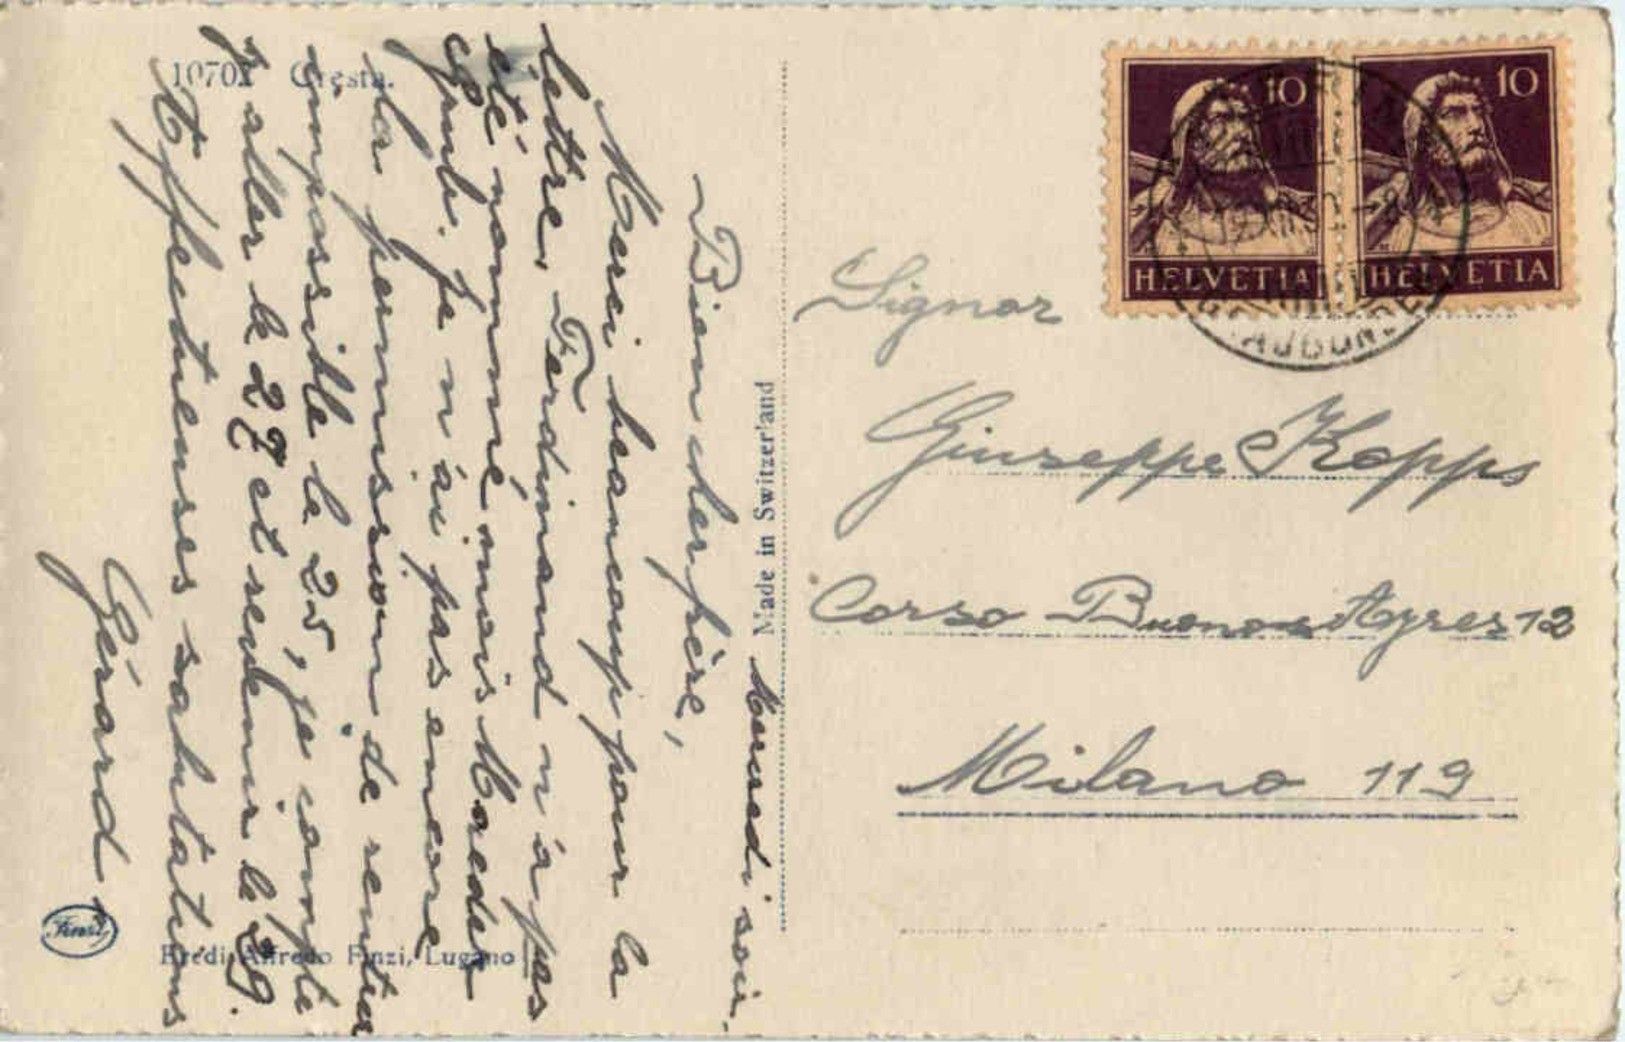 10702 Cresta.
Mercredi soir.
Bien cher père,
Merci beaucoup pour la
lettre, Ferdinand n'a pas
été nommé mais Maeder
Je n'ai pas encore
la permission de rentrer
impossible le 25, je compte
y aller le 27 et revenir le 29.
Affectueuses salutations
Gérard
Made in Switzerland
Finzi
Eredi Alfredo Finzi, Lugano
10
HELVETIA
10
HELVETIA
Signor
Giuseppe Kopps
Corso Buenos Ayres 12
Milano 119